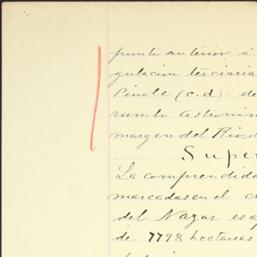 punto anterior á
gulacion terciaria
Pinole (c. d.) de
rumbo astronóm
margen del Rio d
Super
La comprendida
marcadas en el c
del Nazas es ap
de 7798 hectareas